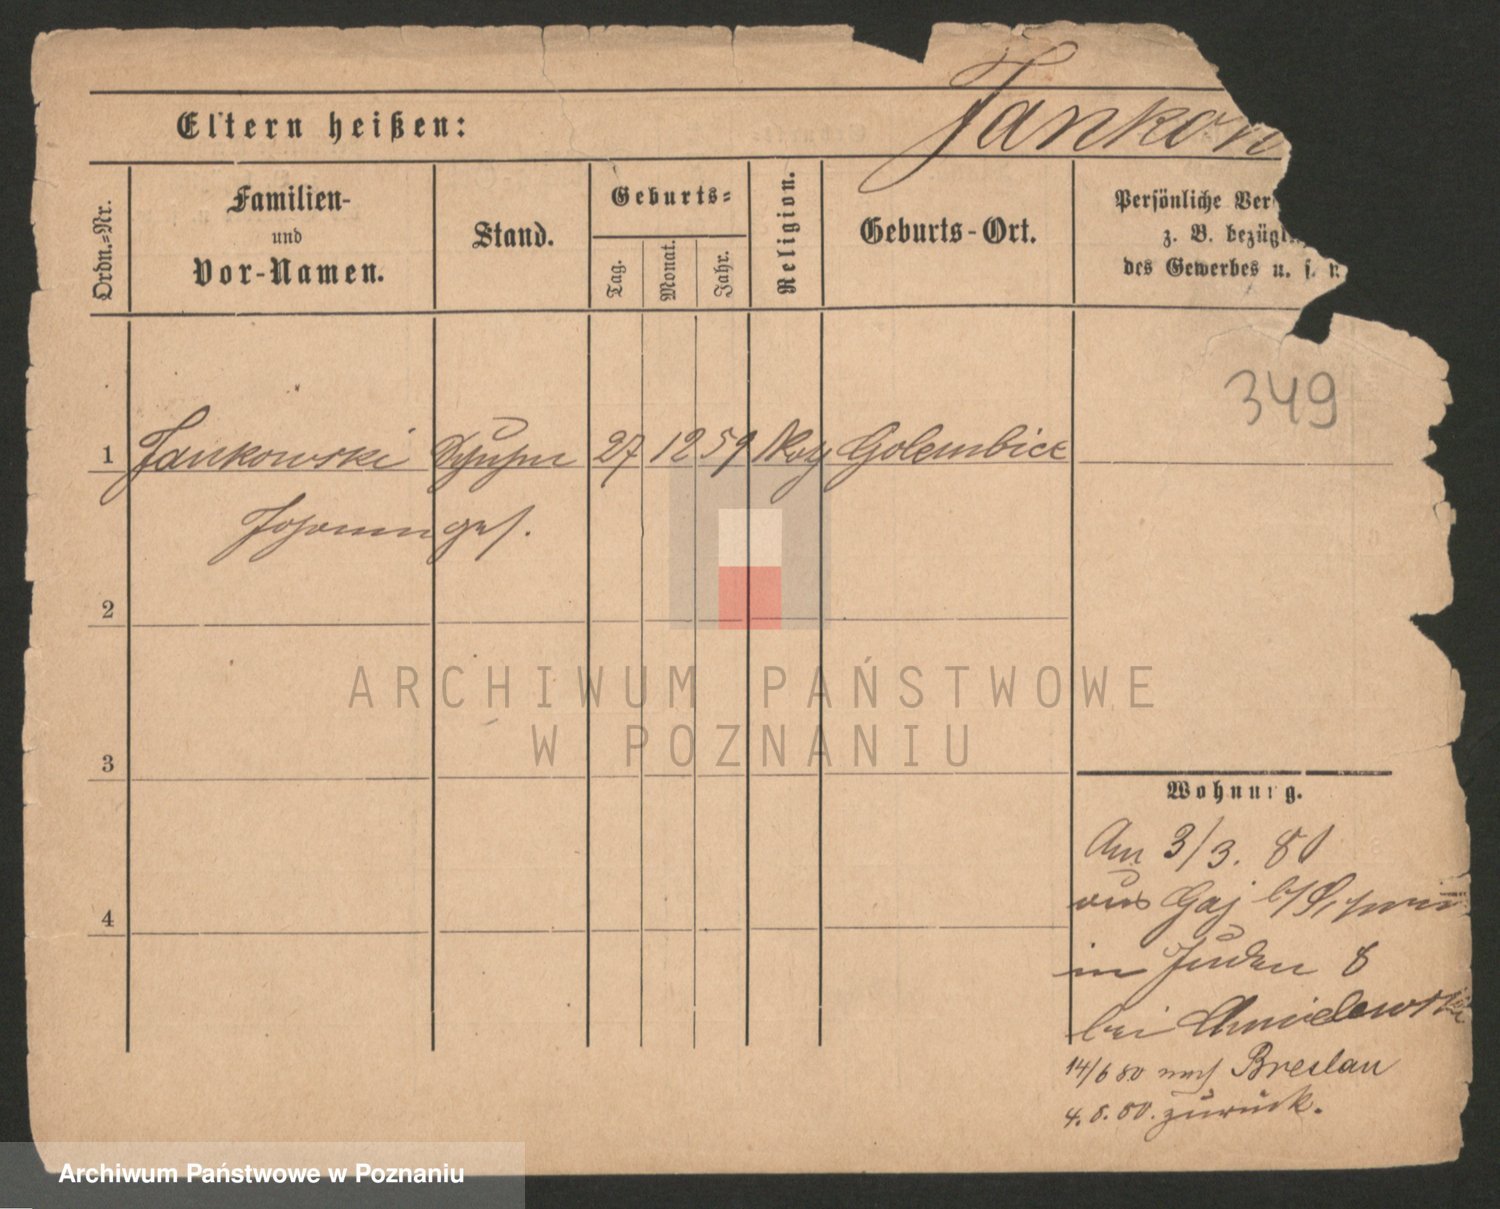 Jankow
Eltern heißen:
Ordn.-Nr.
Familien-
und
Vor-Namen.
Stand.
Geburts-
Tag.
Monat.
Jahr.
Religion.
Geburts-Ort.
Persönliche Ver
z. B. bezügl.
des Gewerbes u. s. w.
349
1 Jankowski 27 12 59 Golembice
Johann ges.
2
3
4
Wohnung.
Am 3/3. 80
aus Gaj b/
in Juden 8
bei Chmielewski
14/6 80 nach Breslau
4. 8. 80. zurück.
ARCHIWUM PAŃSTWOWE
W POZNANIU
Archiwum Państwowe w Poznaniu